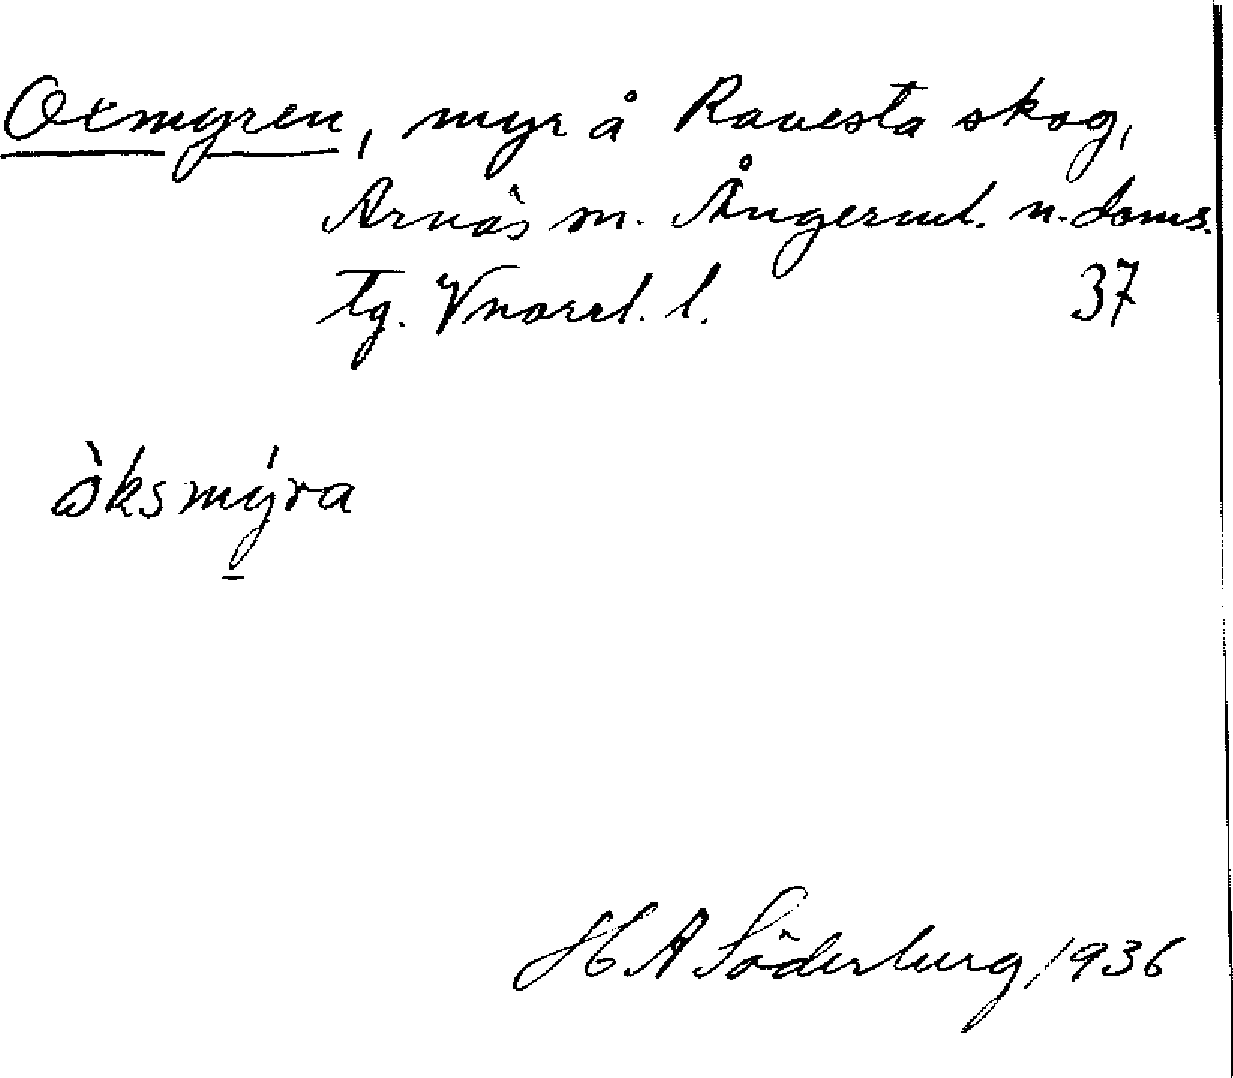 Oxmyren, myr å Ravesta skog,
Arnäs sn. Ångerml. n. doms.
tg. Vnorrl. l. 37
òksmýra
H A Söderberg 1936